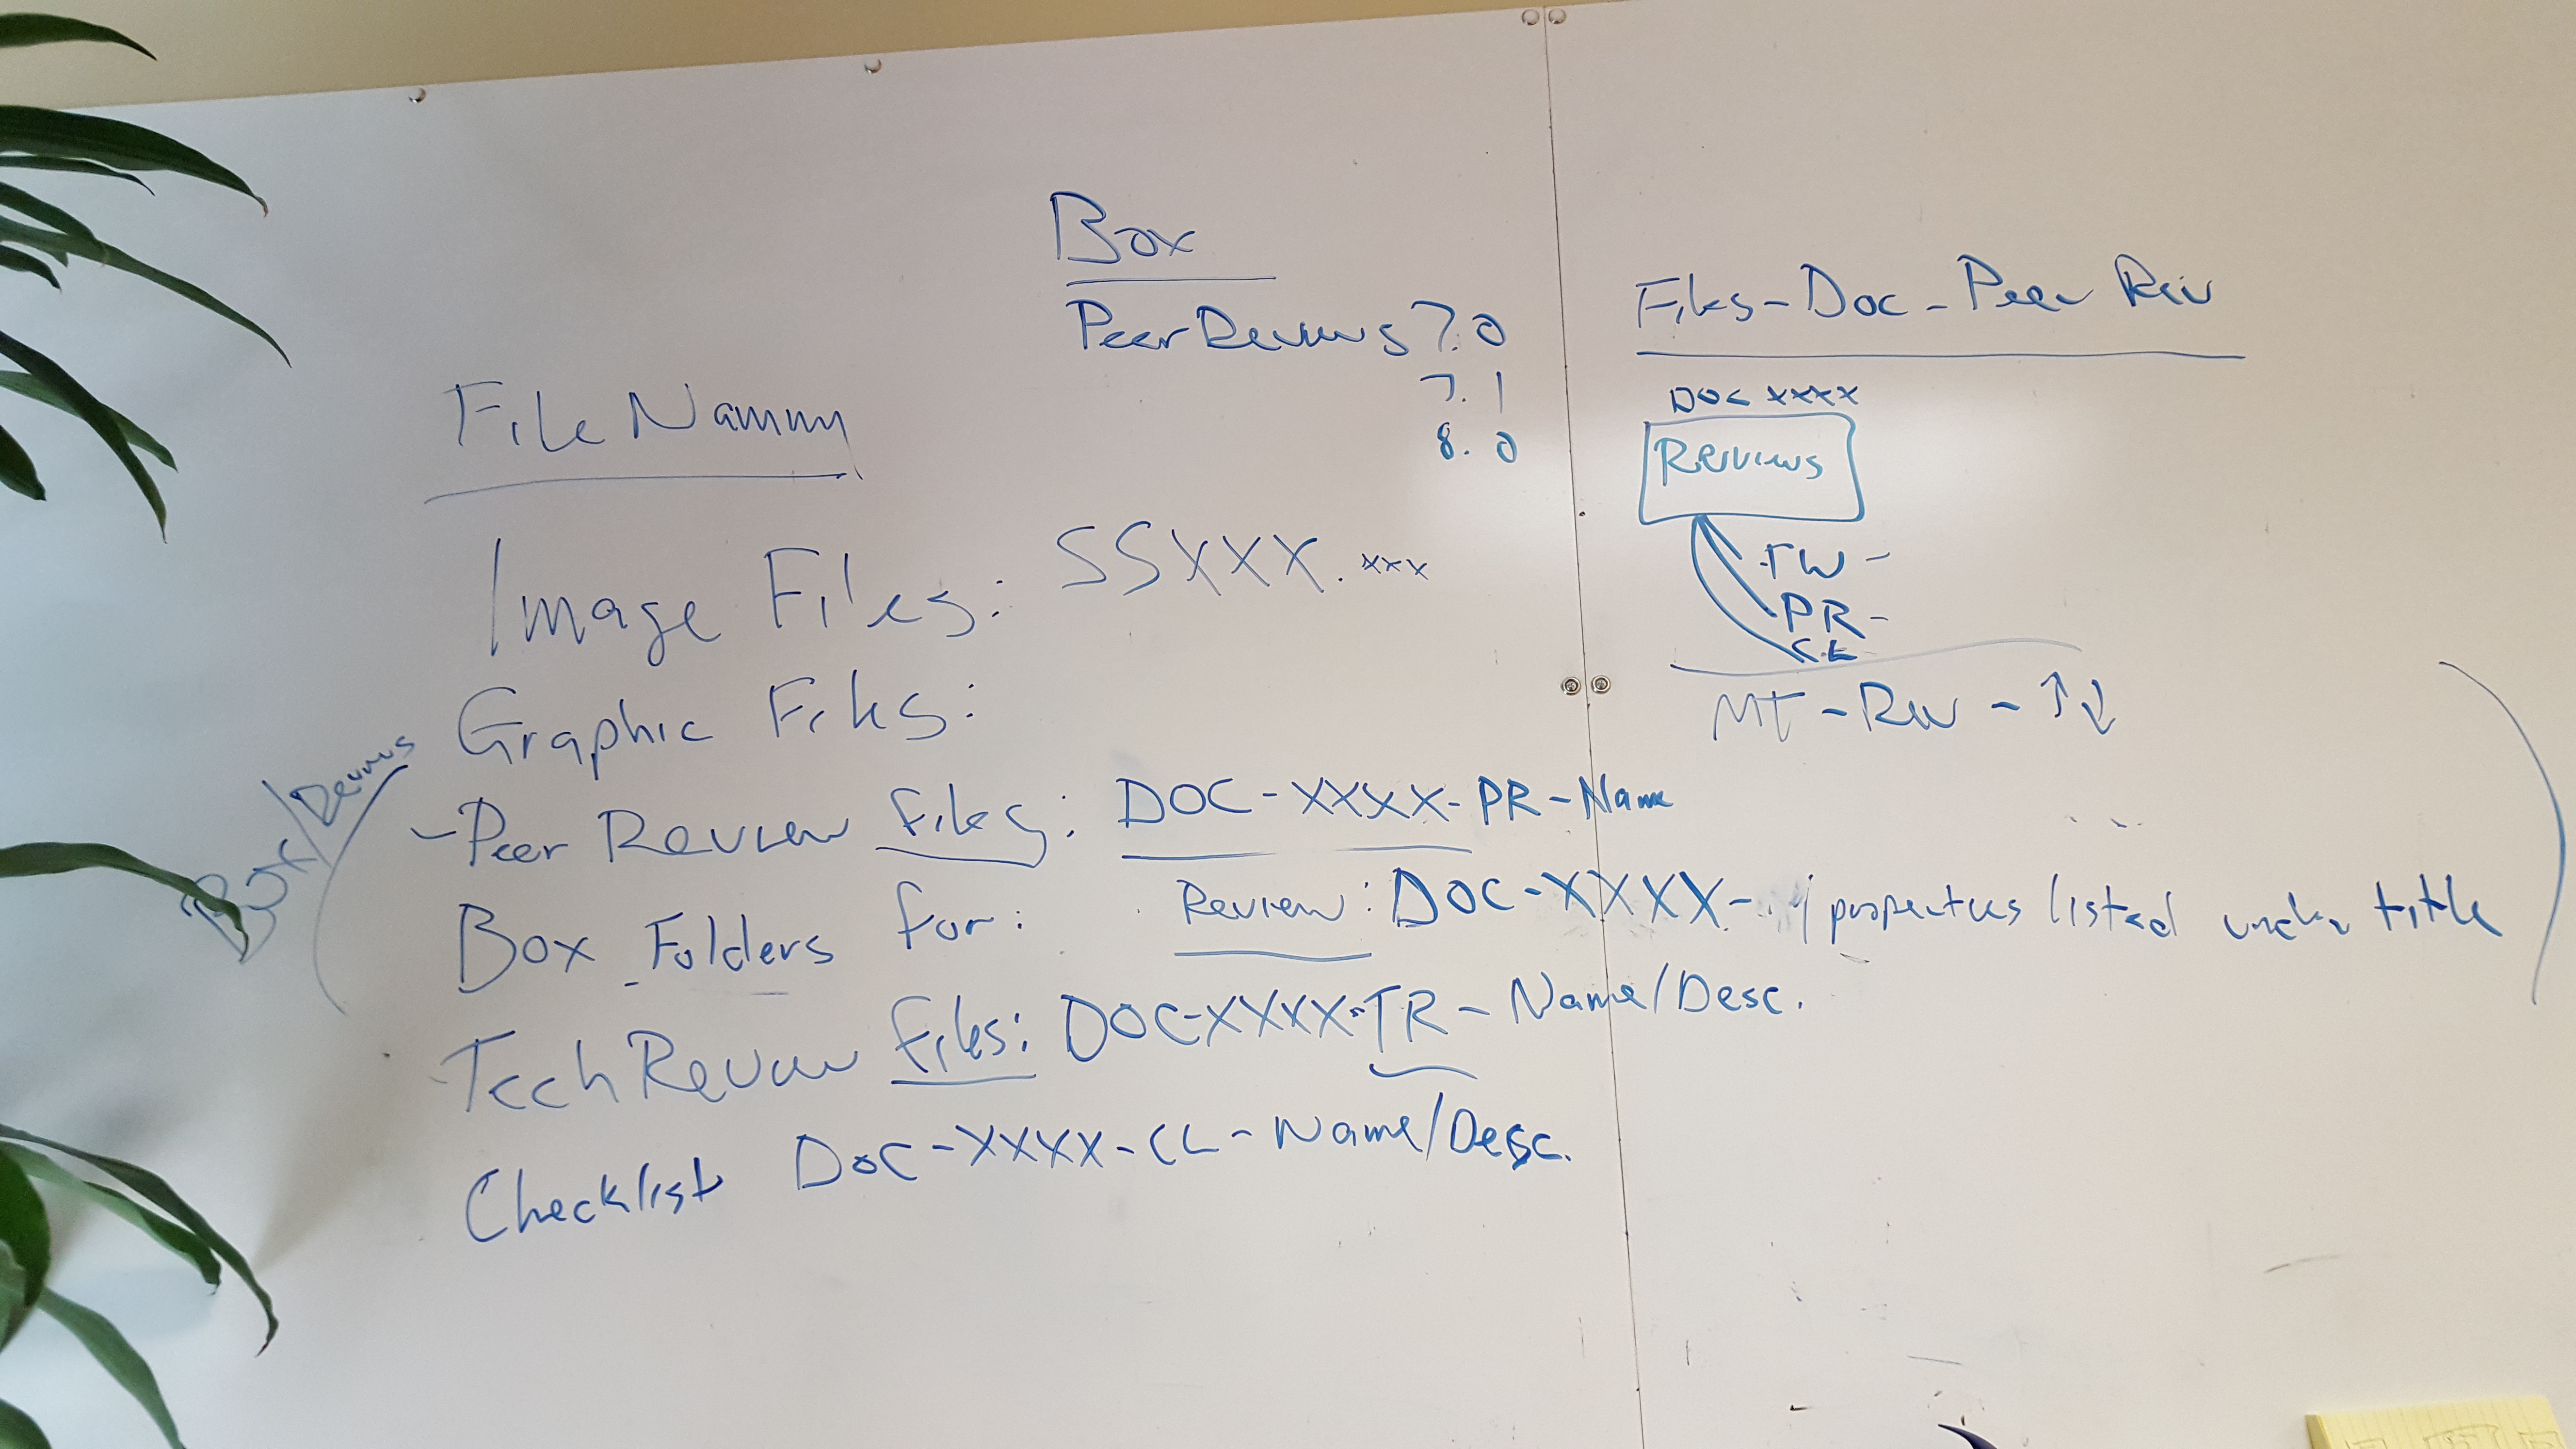 Box
Peer Reviews 7.0
7.1
8.0
Files - Doc - Peer Rev
DOC xxxx
Reviews
TW -
PR -
CL
MT - Rev - ↑↓
File Naming
Image Files: SSXXX.xxx
Graphic Files:
Box/Reviews
- Peer Review Files: DOC-XXXX-PR-Name
Box Folders for: Review: DOC-XXXX- / properties listed under title
Tech Review Files: DOC-XXXX-TR-Name/Desc.
Checklist DOC-XXXX-CL-Name/Desc.